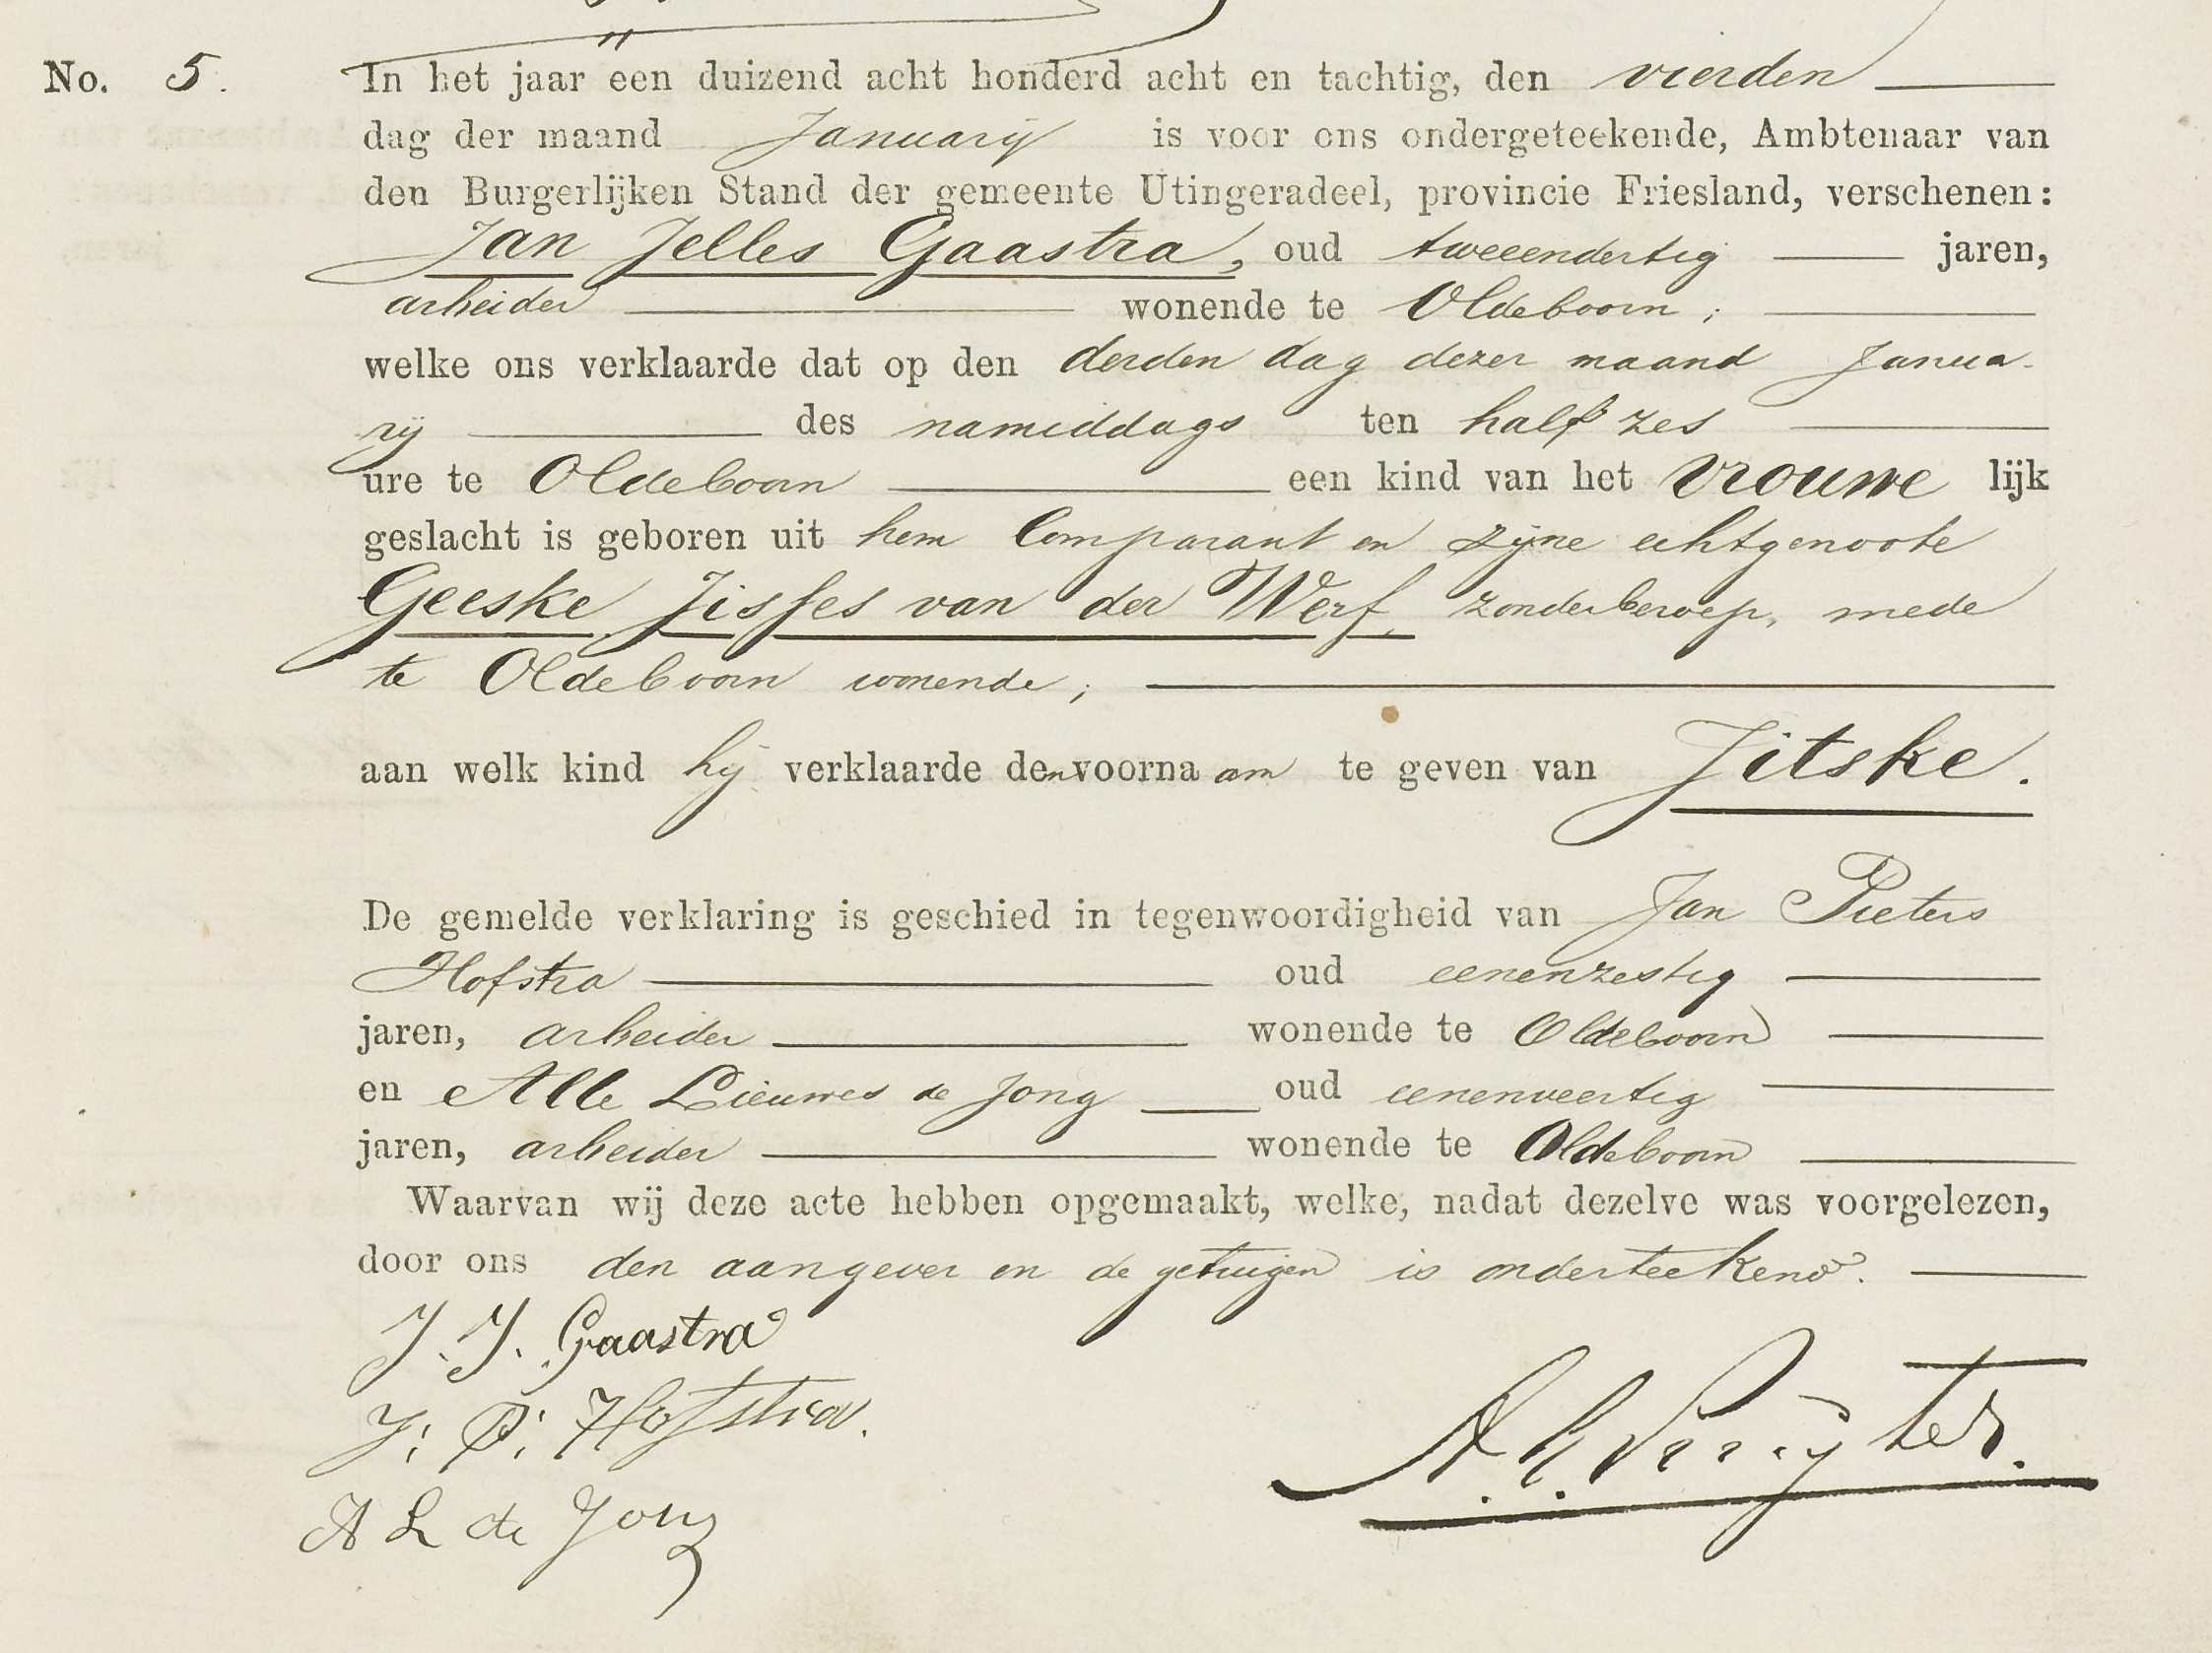 No. 5. In het jaar een duizend acht honderd acht en tachtig, den vierden
dag der maand Januarij is voor ons ondergeteekende, Ambtenaar van
den Burgerlijken Stand der gemeente Utingeradeel, provincie Friesland, verschenen:
Jan Jelles Gaastra, oud tweeendertig jaren,
arbeider wonende te Oldeboorn;
welke ons verklaarde dat op den derden dag dezer maand Janua-
rij des namiddags ten half zes
ure te Oldeboorn een kind van het vrouwe lijk
geslacht is geboren uit hem Comparant en zijne echtgenoote
Geeske Jisses van der Werf, zonder beroep, mede
te Oldeboorn wonende;
aan welk kind hij verklaarde den voorna am te geven van Jitske.
De gemelde verklaring is geschied in tegenwoordigheid van Jan Pieters
Hofstra oud eenenzestig
jaren, arbeider wonende te Oldeboorn
en Alle Lieuwes de Jong oud eenenveertig
jaren, arbeider wonende te Oldeboorn
Waarvan wij deze acte hebben opgemaakt, welke, nadat dezelve was voorgelezen,
door ons den aangever en de getuigen is onderteekend.
J. J. Gaastra
J. P. Hofstra.
A L de Jong